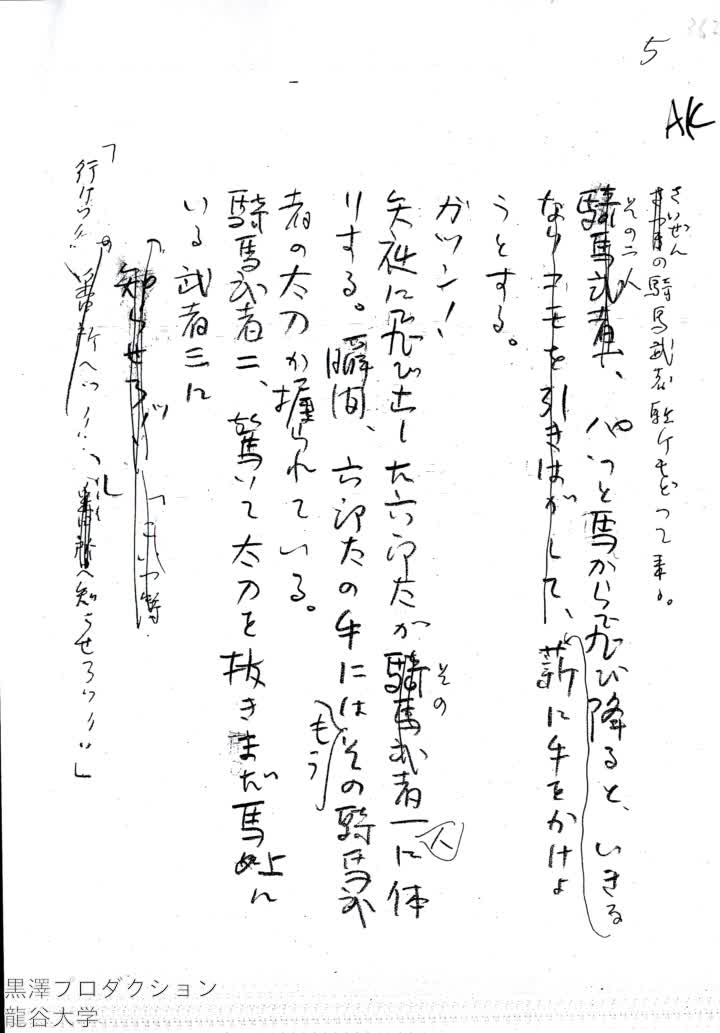 5
AK
さいぜん
の騎馬武者駈けもどって来る。
その二人
騎馬武者、パッと馬から飛び降ると、いきる
なりコモを引きはがして、薪に手をかけよ
うとする。
ガツン!
矢庭に飛び出した六郎太が騎馬武者一に体
その
人
りする。瞬間、六郎太の手にはその騎馬武
もう
者の太刀が握られている。
騎馬武者二、驚いて太刀を抜きまだ馬上に
いる武者三に
知らせろッ!!
「行けッ!! 番所へッ!! 番所へ知らせろッ!!」
黒澤プロダクション
龍谷大学